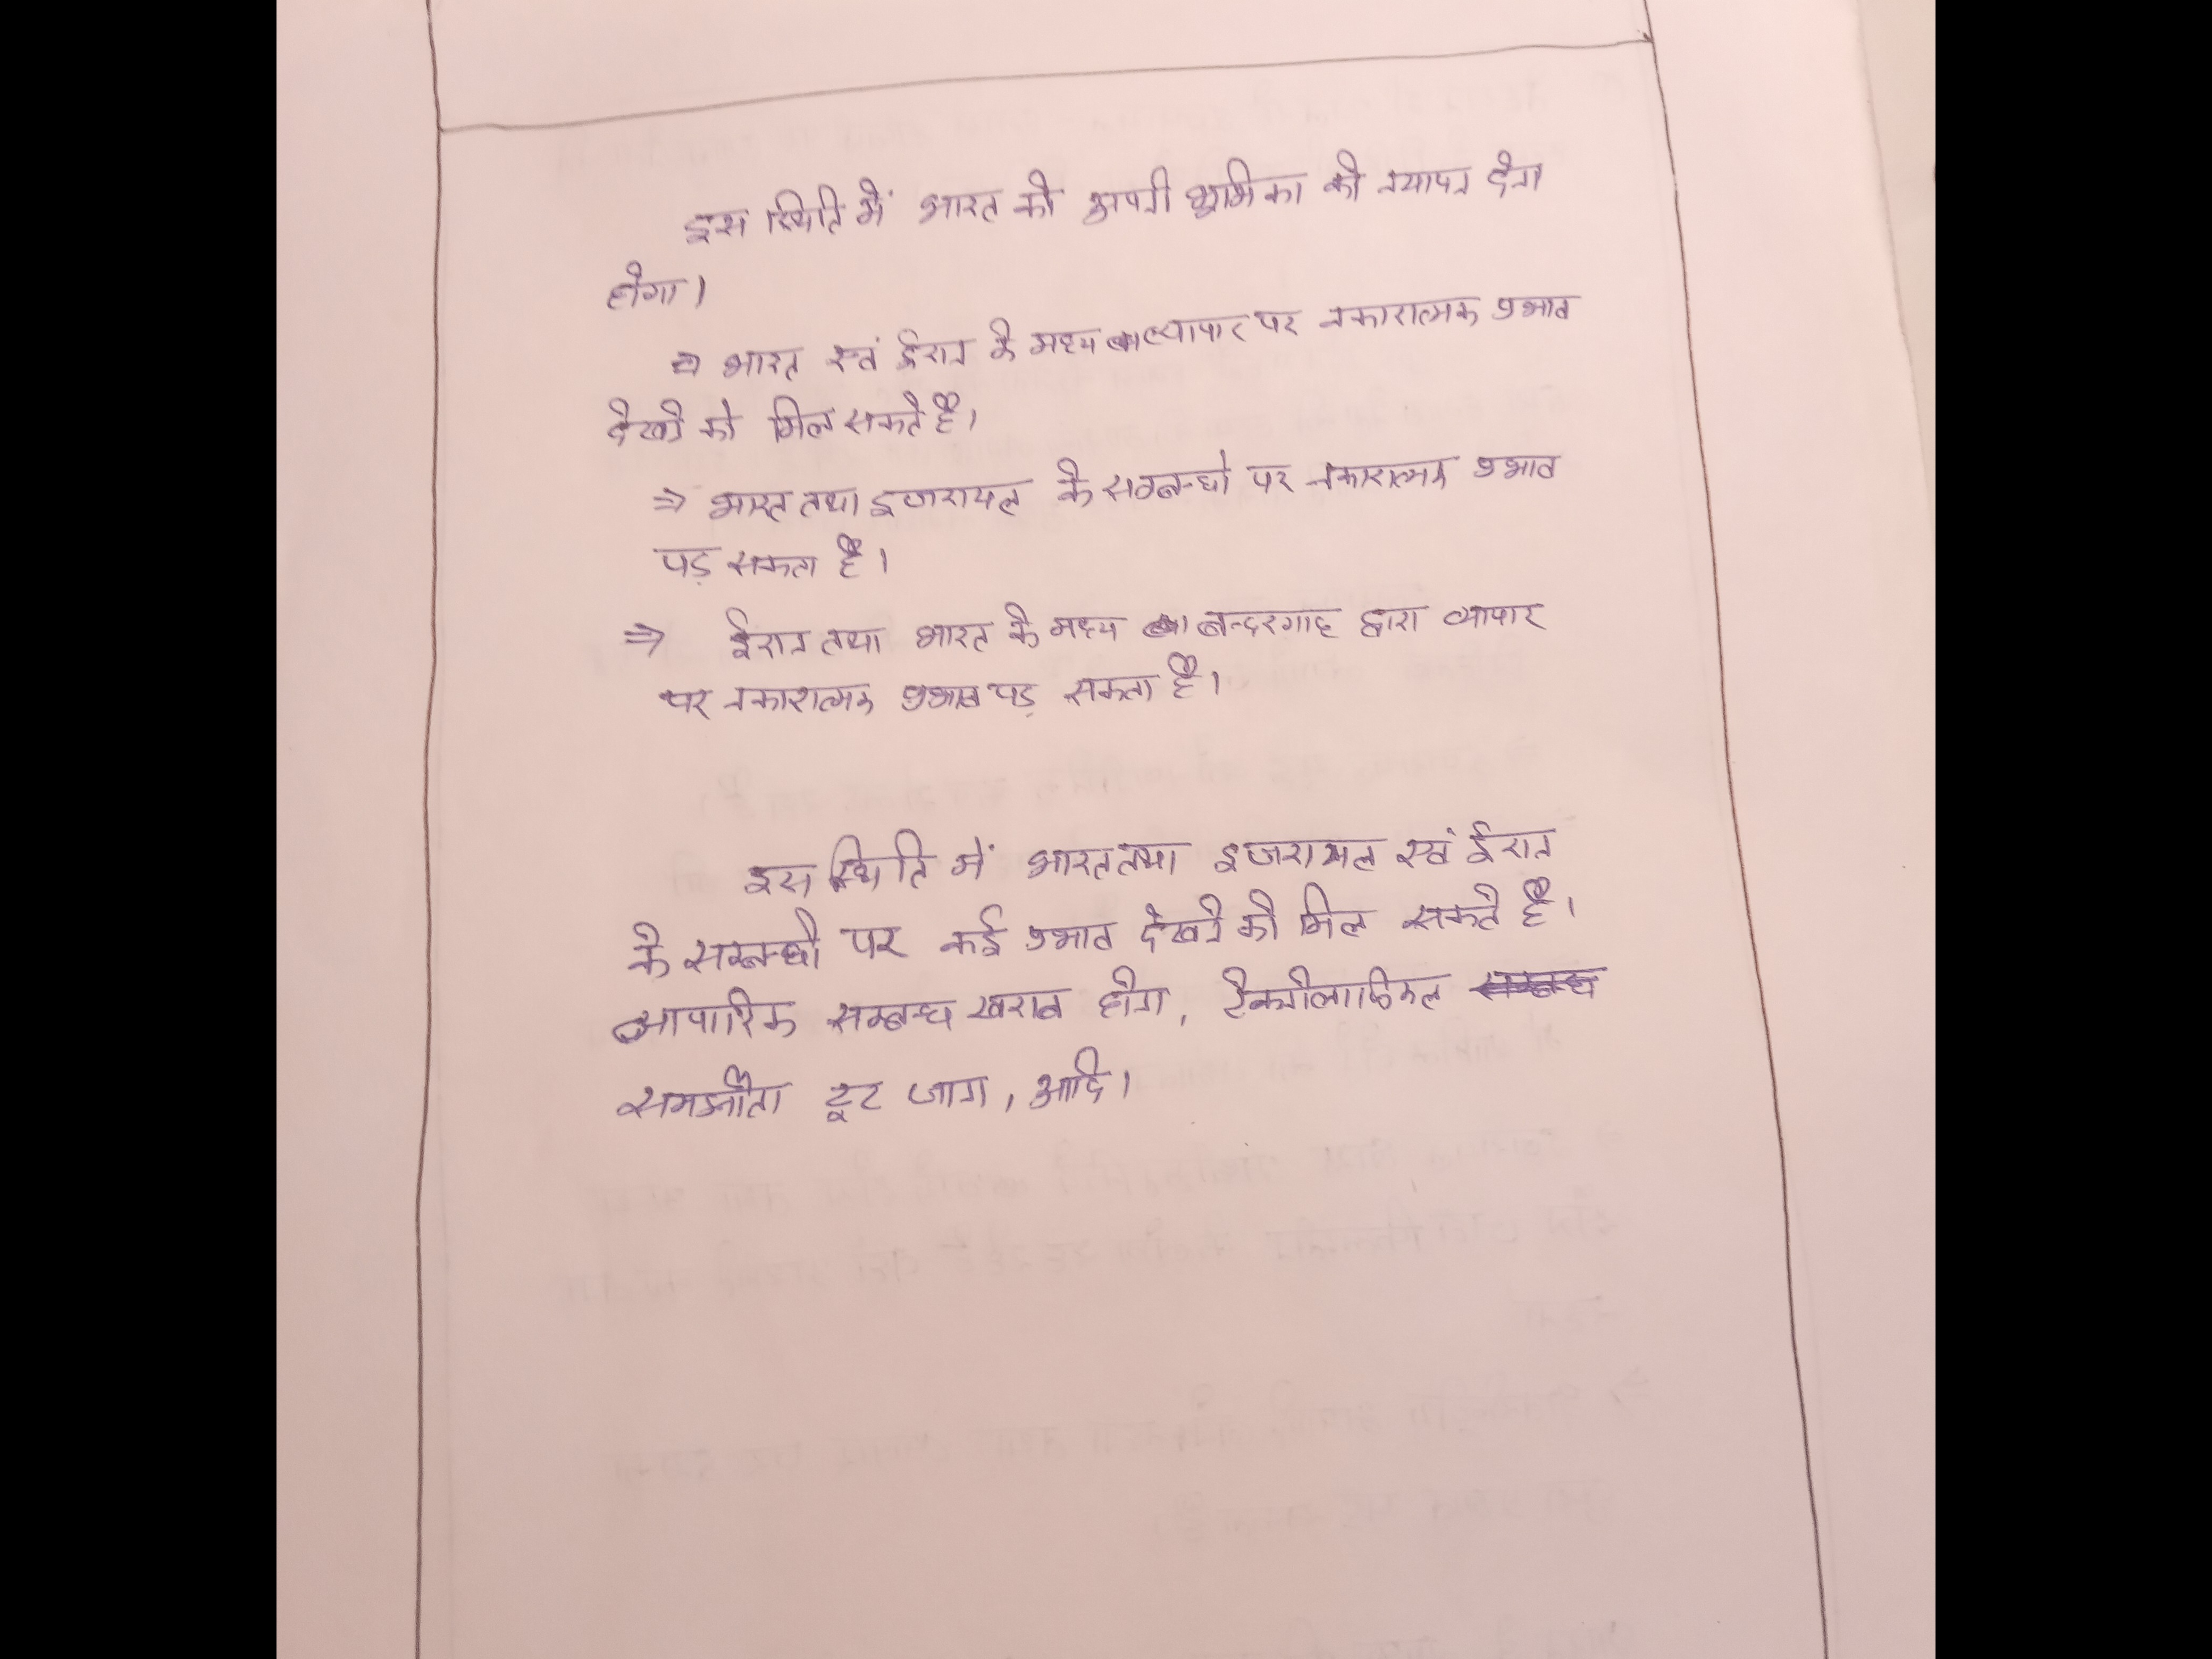 इस स्थिति में भारत को अपनी भूमिका को न्यापन देना
होगा।
⇒ भारत एवं ईरान के मध्य व्यापार पर नकारात्मक प्रभाव
देखने को मिल सकते है।
⇒ भारत तथा इजरायल के सम्बन्धो पर नकारात्मक प्रभाव
पड़ सकता है।
⇒ ईरान तथा भारत के मध्य बन्दरगाह द्वारा व्यापार
पर नकारात्मक प्रभाव पड़ सकता है।
इस स्थिति में भारत तथा इजरायल एवं ईरान
के सम्बन्धो पर कई प्रभाव देखने को मिल सकते है।
व्यापारिक सम्बन्ध खराब होगा, टैक्नोलाजिकल
समझौता टूट जागा, आदि।